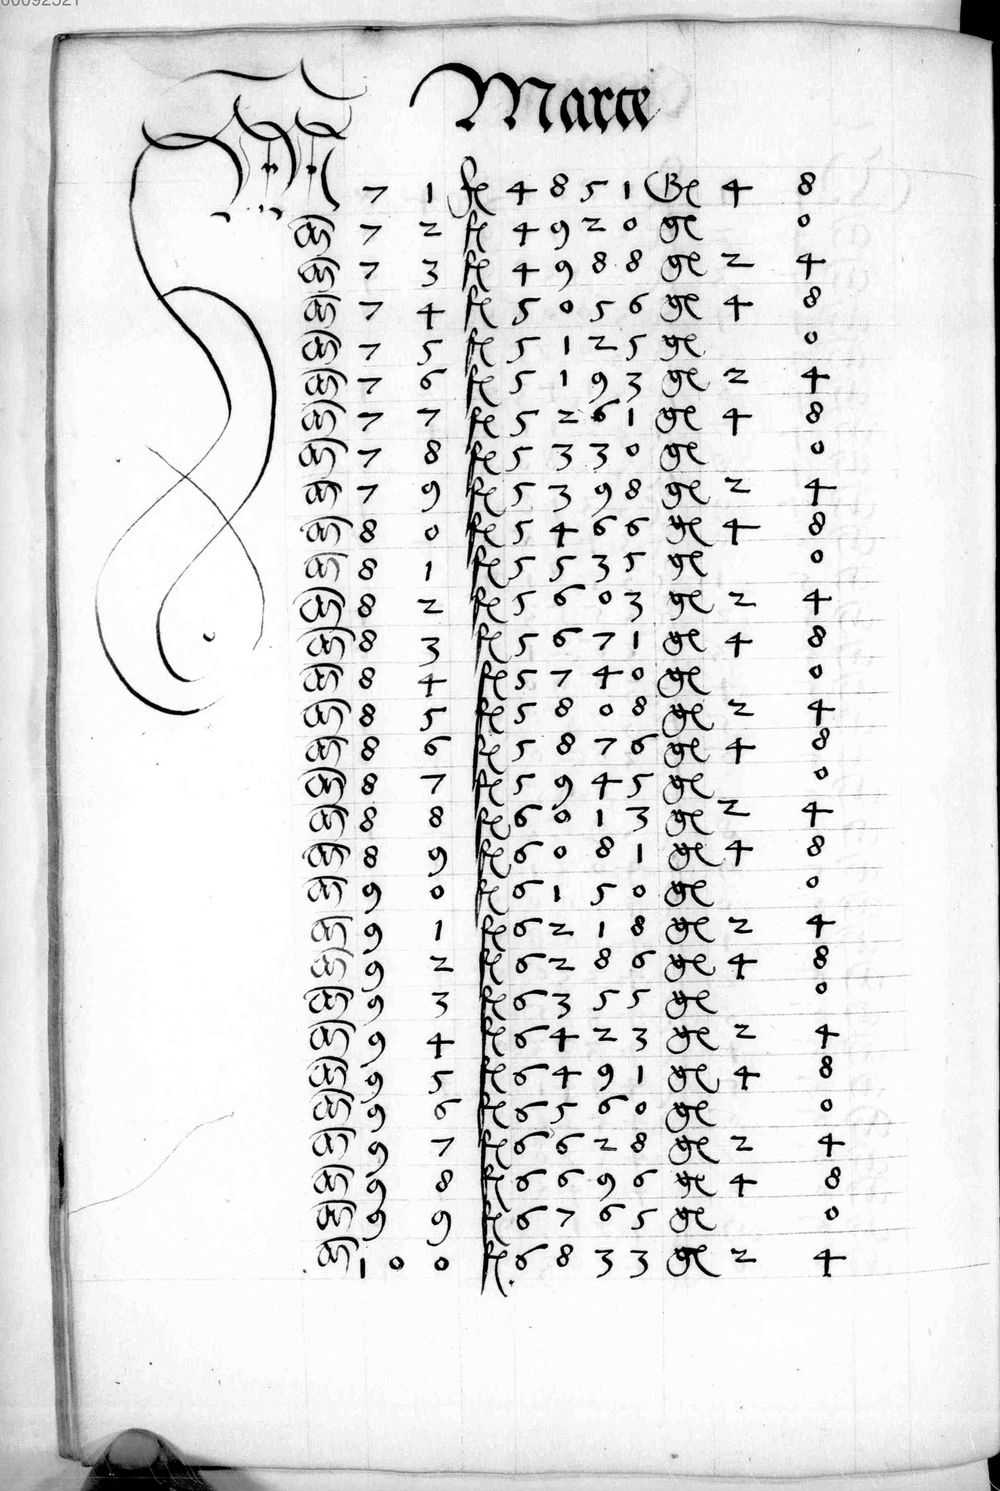 00092521
Marce
M 7 1 fl 4 8 5 1 Gl 4 8
M 7 2 fl 4 9 2 0 gl 0
M 7 3 fl 4 9 8 8 gl 2 4
M 7 4 fl 5 0 5 6 gl 4 8
M 7 5 fl 5 1 2 5 gl 0
M 7 6 fl 5 1 9 3 gl 2 4
M 7 7 fl 5 2 6 1 gl 4 8
M 7 8 fl 5 3 3 0 gl 0
M 7 9 fl 5 3 9 8 gl 2 4
M 8 0 fl 5 4 6 6 gl 4 8
M 8 1 fl 5 5 3 5 gl 0
M 8 2 fl 5 6 0 3 gl 2 4
M 8 3 fl 5 6 7 1 gl 4 8
M 8 4 fl 5 7 4 0 gl 0
M 8 5 fl 5 8 0 8 gl 2 4
M 8 6 fl 5 8 7 6 gl 4 8
M 8 7 fl 5 9 4 5 gl 0
M 8 8 fl 6 0 1 3 gl 2 4
M 8 9 fl 6 0 8 1 gl 4 8
M 9 0 fl 6 1 5 0 gl 0
M 9 1 fl 6 2 1 8 gl 2 4
M 9 2 fl 6 2 8 6 gl 4 8
M 9 3 fl 6 3 5 5 gl 0
M 9 4 fl 6 4 2 3 gl 2 4
M 9 5 fl 6 4 9 1 gl 4 8
M 9 6 fl 6 5 6 0 gl 0
M 9 7 fl 6 6 2 8 gl 2 4
M 9 8 fl 6 6 9 6 gl 4 8
M 9 9 fl 6 7 6 5 gl 0
M 1 0 0 fl 6 8 3 3 gl 2 4